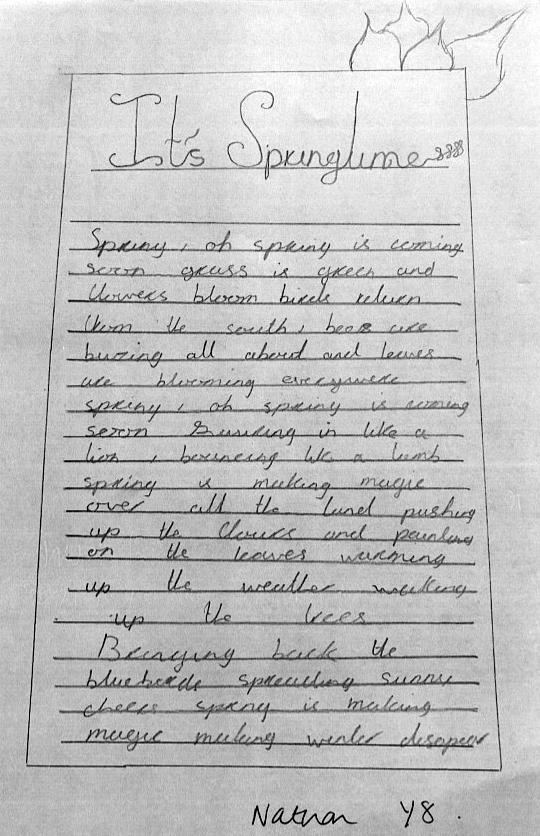 It's Springtime
Spring, oh spring is coming
soon grass is green and
flowers bloom birds return
from the south, bees are
buzing all about and leaves
are blooming everywere
spring, oh spring is coming
soon Bursting in like a
lion, bouncing lik a lamb
spring is making magic
over all the land pushing
up the flowers and painting
on the leaves warming
up the weather waking
up the trees
Bringing back the
bluebirds spreading sunny
cheers spring is making
magic making winter disapear
Nathan Y8.